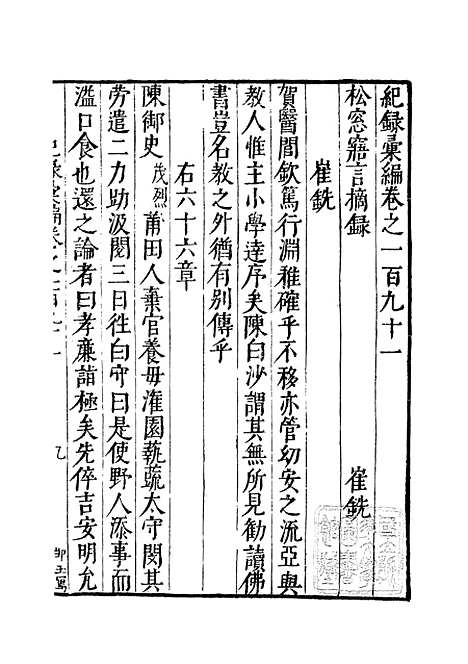 紀録彙編卷之一百九十一
松窓寤言摘録
崔銑
崔銑
賀醫閭欽篤行淵雅確乎不移亦管幼安之流亞與
教人惟主小學達序矣陳白沙謂其無所見勸讀佛
書豈名教之外猶有别傳乎
右六十六章
陳御史茂烈莆田人棄官養母潅園蓺蔬太守閔其
勞遣二力助汲閱三日徃白守曰是使野人添事而
溢口食也還之論者曰孝廉詣極矣先倅吉安明允